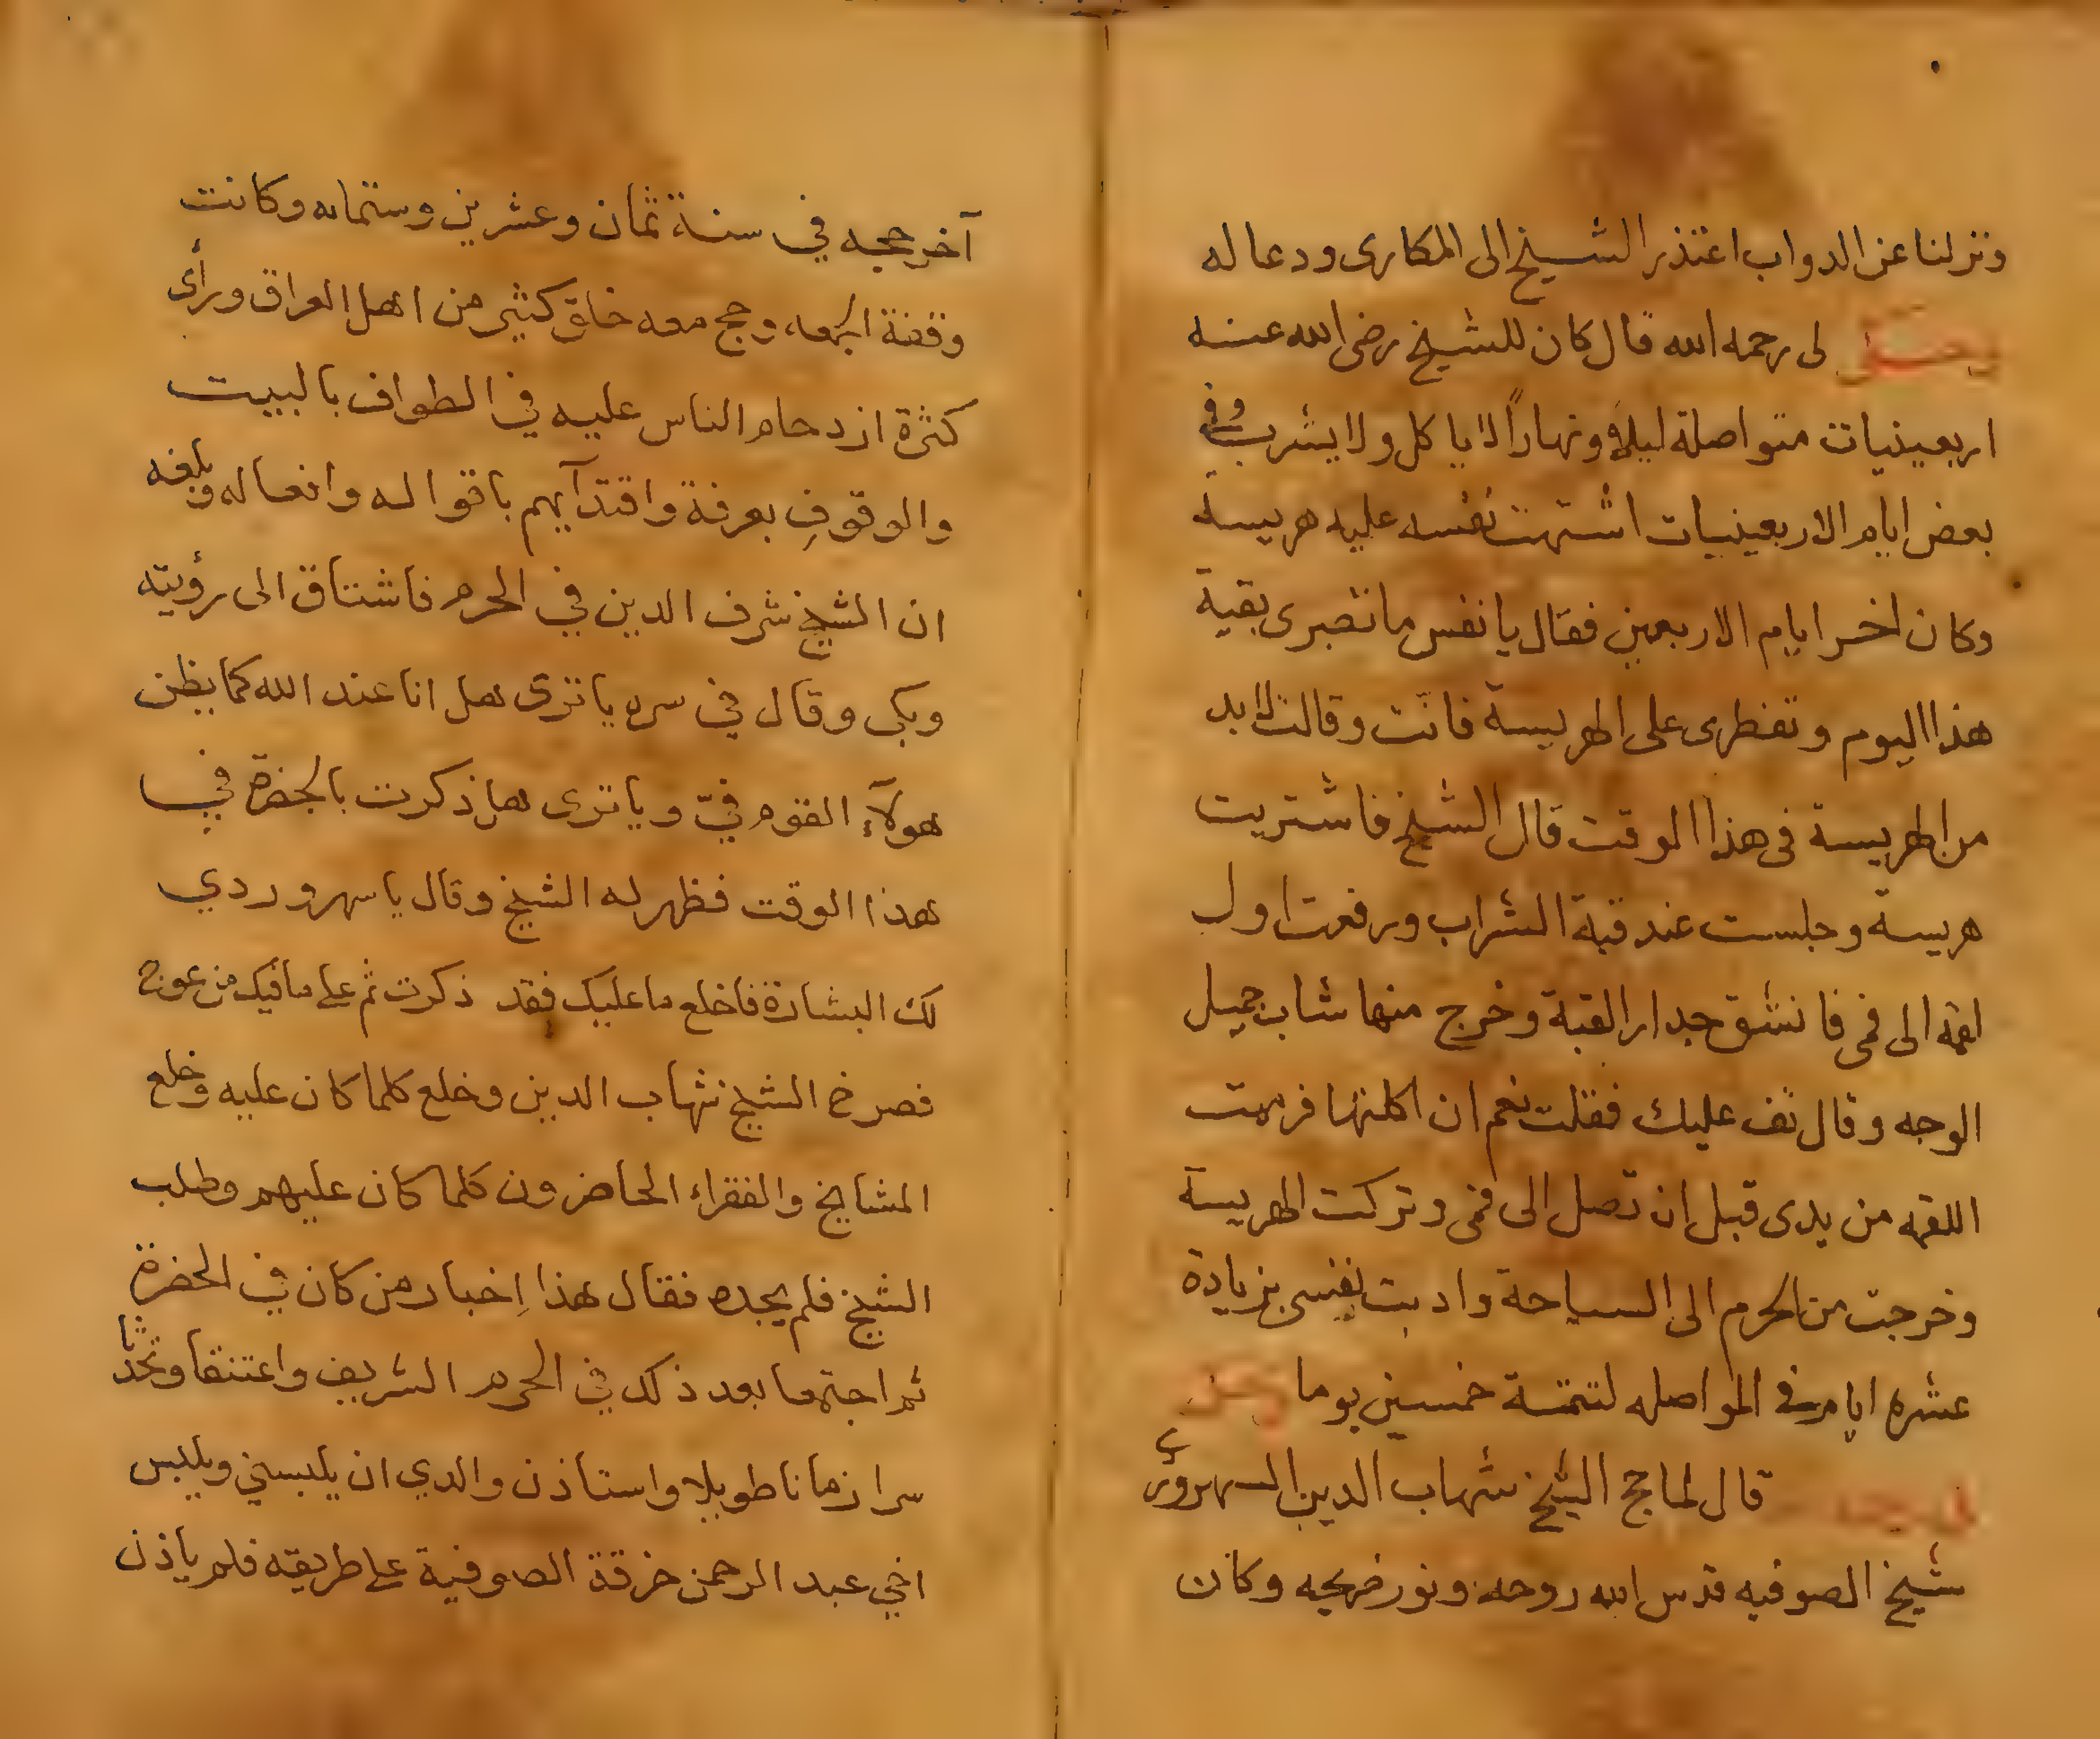 ونزلنا عن الدواب اعتذر الشيخ الى المكارى ودعا له
لى رحمه الله قال كان للشيخ رضى الله عنه
اربعينيات متواصلة ليلا ونهاراً لا ياكل ولا يشرب وفى
بعض ايام الاربعينيات اشتهت نفسه عليه هريسة
وكان اخر ايام الاربعين فقال يا نفس ما تصبرى بقية
هذا اليوم وتفطرى على الهريسة فاتت وقالت لابد
من الهريسة فى هذا الوقت قال الشيخ فاشتريت
هريسة وجلست عند قبة الشراب ورفعت اول
لقمه الى فمى فانشق جدار القبة وخرج منها شاب جميل
الوجه وقال تف عليك فقلت نعم ان اكلتها فرميت
اللقمه من يدى قبل ان تصل الى فمى وتركت الهريسة
وخرجت من الحرم الى السياحة وادبت نفسى بزيادة
عشره ايام فى المواصله لتتمة خمسين يوما
قال لما حج الشيخ شهاب الدين السهروردى
شيخ الصوفيه قدس الله روحه ونور ضريحه وكان
آخر حجه في سنة ثمان وعشرين وستمايه وكانت
وقفة الجمعه وحج معه خلق كثير من اهل العراق ورأى
كثرة ازدحام الناس عليه في الطواف بالبيت
والوقوفِ بعرفة واقتدآيهم باقواله وافعاله وبلغه
ان الشيخ شرف الدين في الحرم فاشتاق الى رؤيته
وبكى وقال في سره يا ترى هل انا عند الله كما يظن
هولآء القوم فيّ ويا ترى هل ذكرت بالحضرة في
هذا الوقت فظهر له الشيخ وقال يا سهروردي
لك البشارة فاخلع ما عليك فقد ذكرت ثم على ما فيك من عوج
فصرخ الشيخ شهاب الدين وخلع كلما كان عليه وخلع
المشايخ والفقراء الحاضرون كلما كان عليهم وطلب
الشيخ فلم يجده فقال هذا اِخبار من كان في الحضرة
ثم اجتمعا بعد ذلك في الحرم الشريف واعتنقا وتحدثا
سرا زمانا طويلا واستاذن والدي ان يلبسني ويلبس
اخي عبد الرحمن خرقة الصوفية على طريقه فلم ياذن